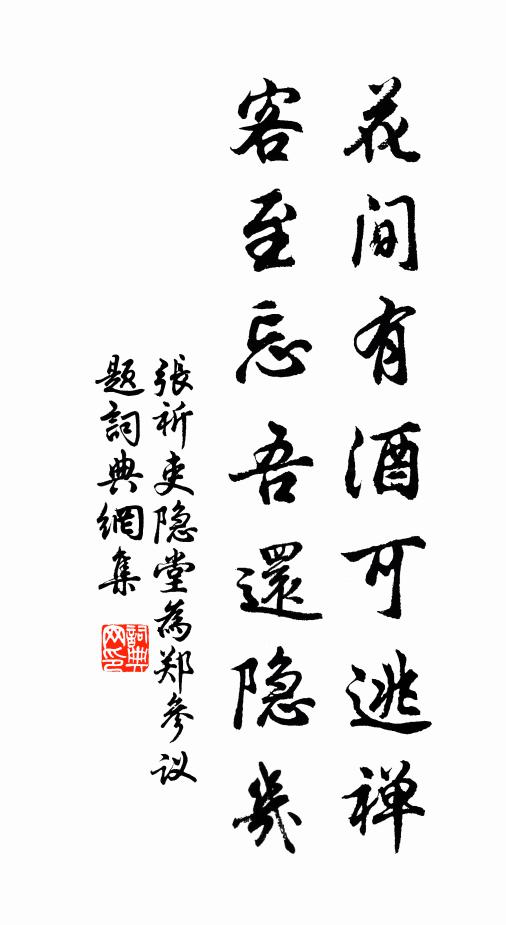 花间有酒可逃禅
客至忘吾還隐幾
張祈吏隐堂為郑參议
题詞典網集
詞典網印